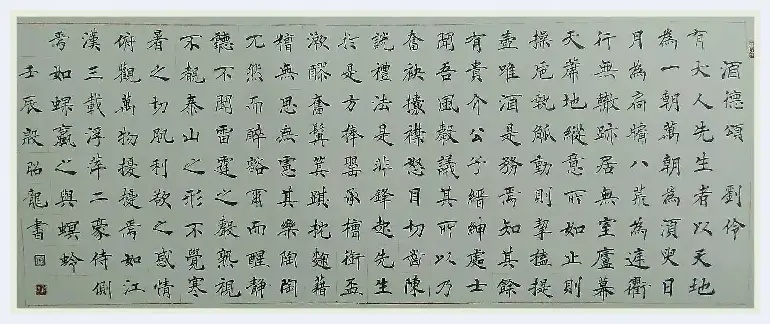 酒德頌 劉伶
有大人先生者以天地
為一朝萬朝為須臾日
月為扃牖八荒為庭衢
行無轍跡居無室廬幕
天席地縱意所如止則
操卮執觚動則挈榼提
壺唯酒是務焉知其餘
有貴介公子縉紳處士
聞吾風聲議其所以乃
奮袂攘襟怒目切齒陳
說禮法是非鋒起先生
於是方捧罌承槽銜盃
漱醪奮髯箕踞枕麴藉
糟無思無慮其樂陶陶
兀然而醉豁爾而醒靜
聽不聞雷霆之聲熟視
不覩泰山之形不覺寒
暑之切肌利欲之感情
俯觀萬物擾擾焉如江
漢三載浮萍二豪侍側
焉如蜾蠃之與螟蛉
壬辰殷昭龍書